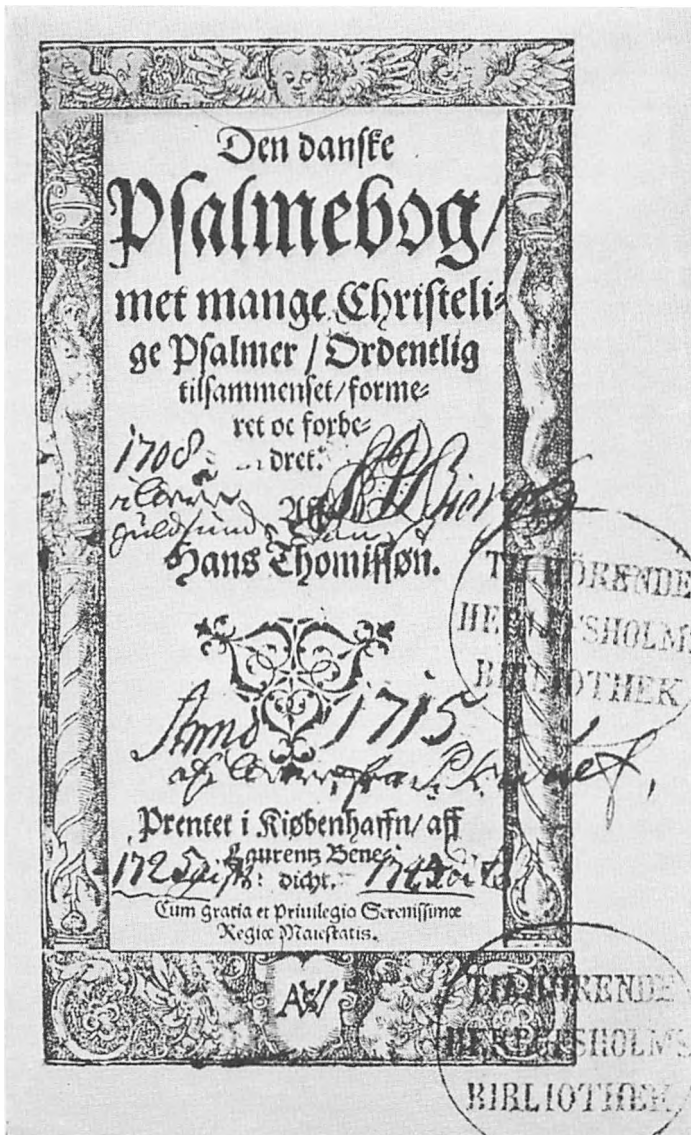 Den danske
Psalmebog/
met mange Christeli-
ge Psalmer / Ordentlig
tilsammenset/ forme-
ret oc forbe-
dret.
1708
Aff
Hans Thomissøn.
TILHÖRENDE
HERLUFSHOLMS
BIBLIOTHEK
Anno 1715
Prentet i Kiøbenhaffn/ aff
Laurentz Bene-
dicht.
Cum gratia et Priuilegio Serenissimæ
Regiæ Maiestatis.
TILHÖRENDE
HERLUFSHOLMS
BIBLIOTHEK